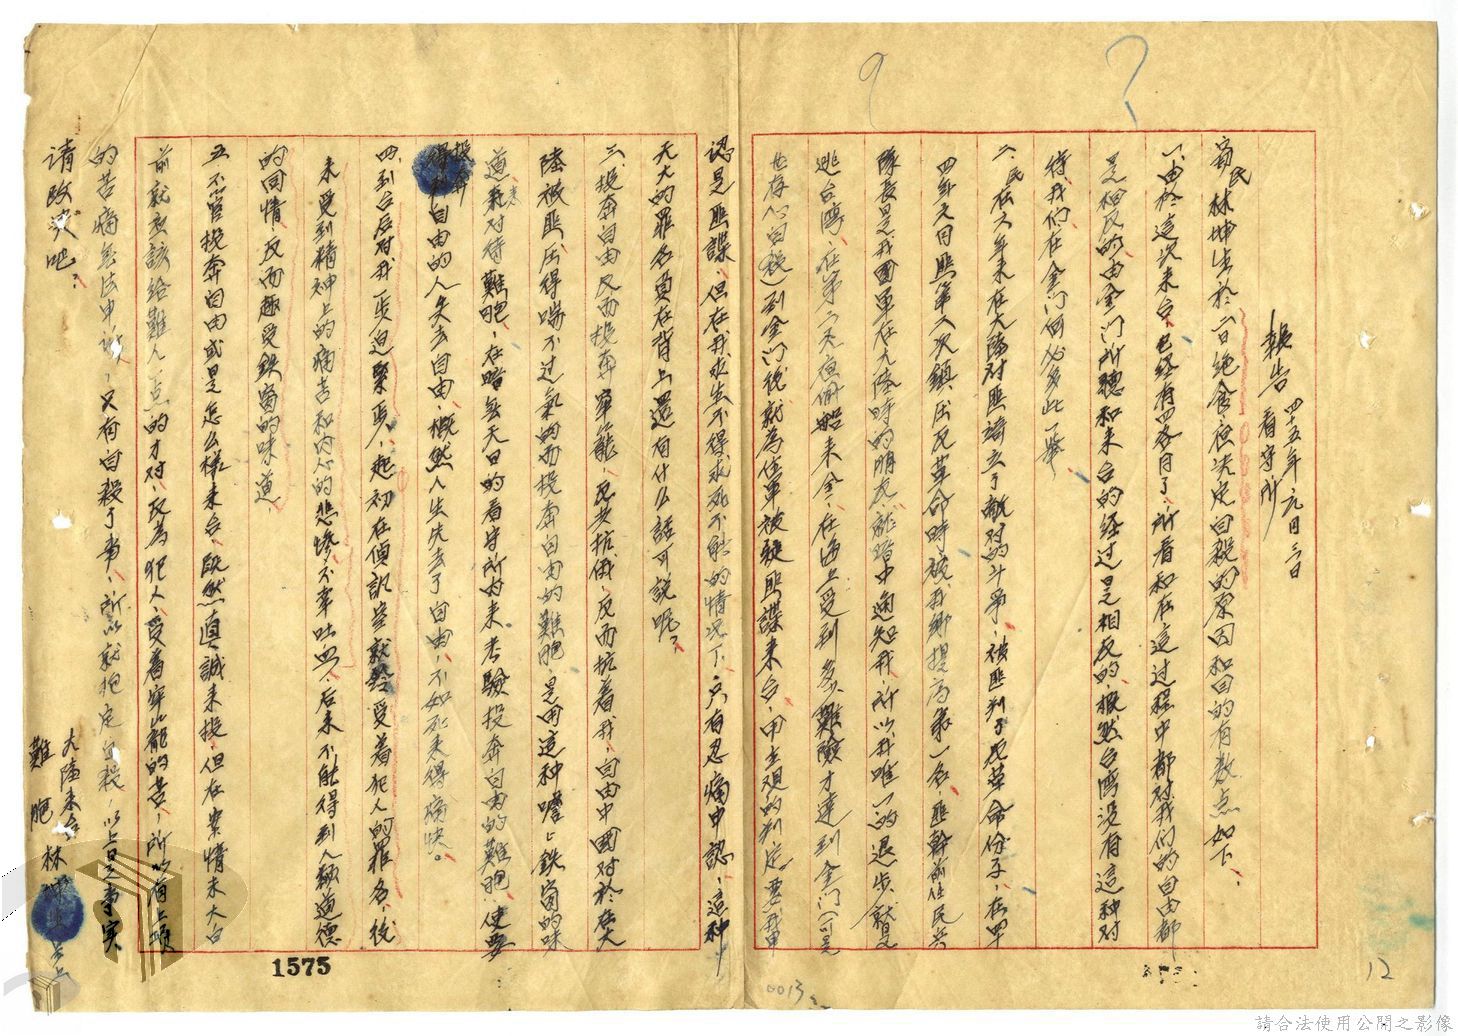 報告 四十五年元月三日
看守所
窃民林坤生於二日絕食,被決定自殺的原因和目的有数点如下、
一、由於這次來台、已經有四多月了、所看和在這过程中都对我們的自由都
是相反的、由金門所聽和來台的经过是相反的、概然台湾没有這种对
待我們、在金門何必多此一舉、
二、民在六年來在大陸对匪諾立了敵对的斗爭、被匪判予反革命份子、在四
四年元月匪第六次鎮压反革命時被我鄉提為第一名、匪幹前任民兵
隊長是我國軍在大陸時的朋友、就暗中通知我、所以我唯一的退步就是
逃台湾、在第二天夜偷船來金、在海上受到多少難險才達到金門(可是
也存心自殺)到金門後就為住軍被疑匪諜來台、用主观的判定要我甲
認是匪諜、但在我求生不得求死不能的情况下、只有忍痛申認、這种
天大的罪名負在背上還有什么話可說呢?
三、投奔自由反而投奔牢籠、反共抗俄、反而抗着我、自由中國对於在大
陸被匪压得喘不过氣的而投奔自由的難胞、是用這种嘗上鉄窗的味
道來对待難胞、在暗無天日的看守所內來考驗投奔自由的難胞、使要
投奔自由的人失去自由、概然人生失去了自由、不如死來得痛快。
四、到台后对我一步迫緊一步、起初在偵訊室就経受着犯人的罪名、後
來受到精神上的痛苦和內心的悲慘、不幸吐血、后來不能得到人類道德
的同情、反而趣受鉄窗的味道、
五、不管投奔自由或是怎么樣來台、既然真誠來投、但在案情未大白
前就应該給難人一点的才对、反為犯人、受着牢籠的苦、所以有上項
的苦痛無法申訴、只有自殺了事、所以就抱定自殺、以上是事实
请政決吧?
大陸來台
難胞 林坤生 呈上
1575
0013
12
請合法使用公開之影像